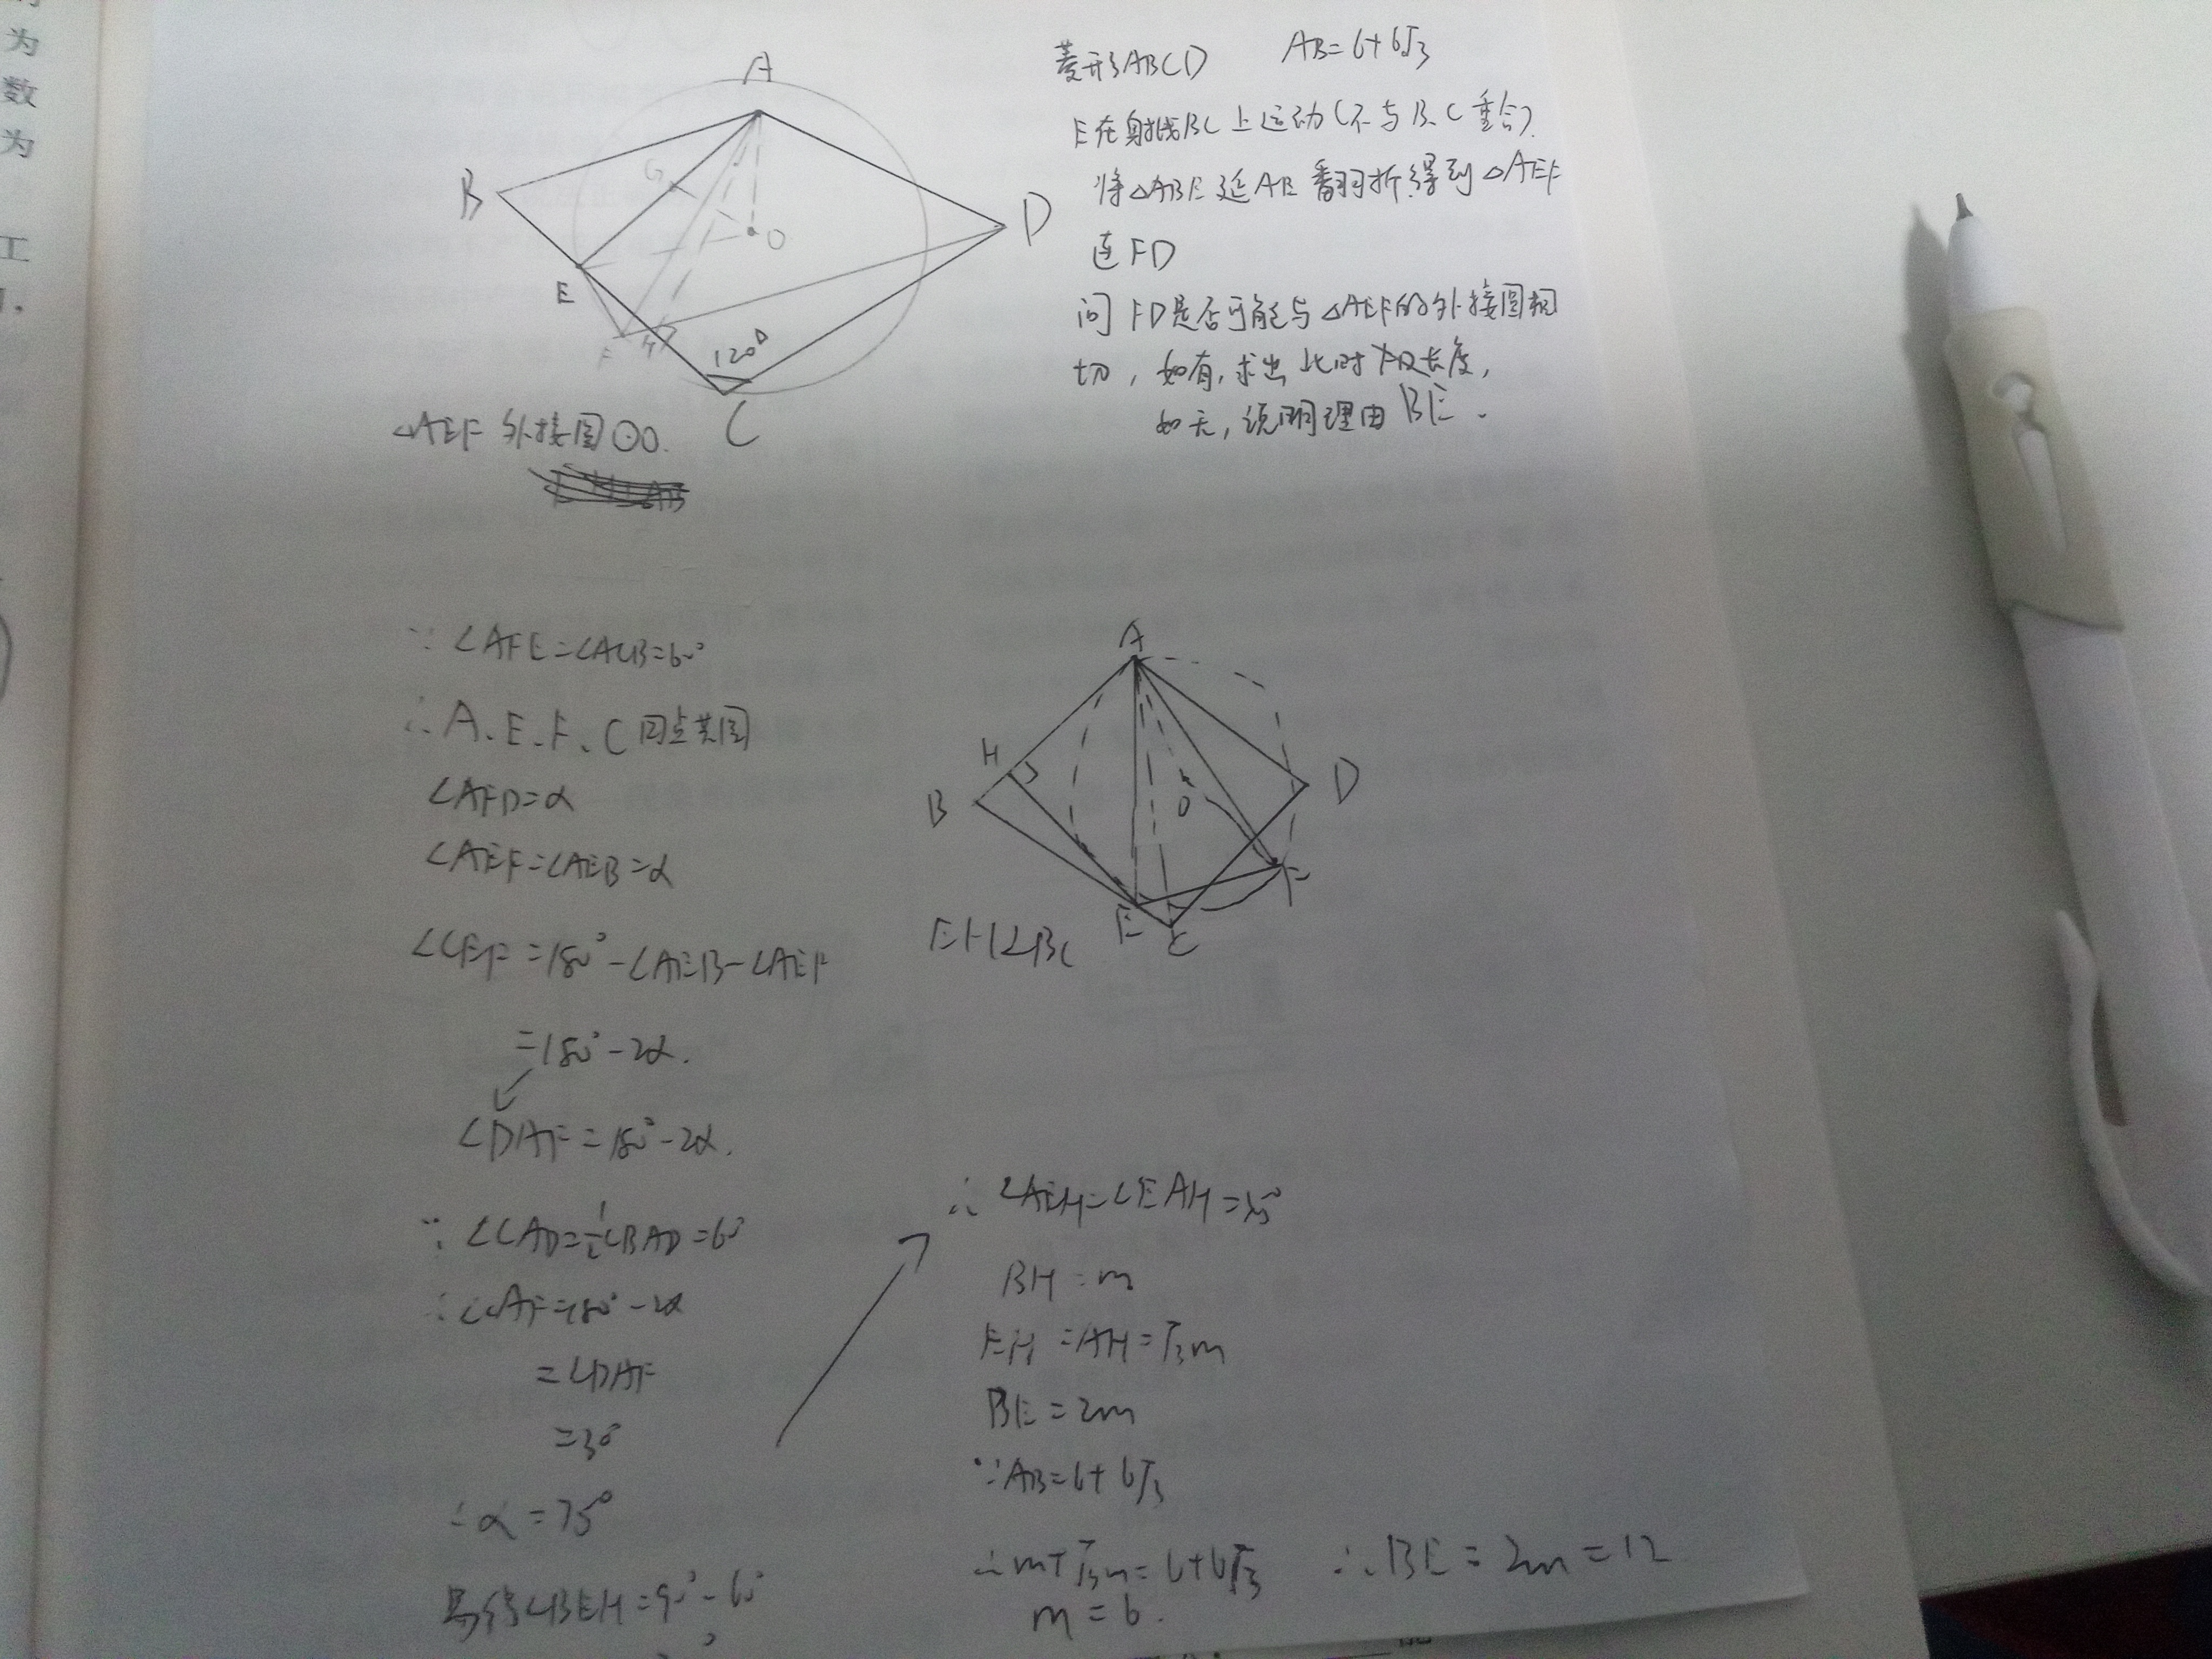 为
数
为
工
A
B
G
O
D
E
F
H
120°
C
菱形ABCD AB=6+6√3
E在射线BC上运动(不与B、C重合)
将△ABE延AE翻折得到△AEF
连FD
问FD是否可能与△AEF的外接圆相
切,如有,求出此时长度,
如无,说明理由BE.
△AEF外接圆⊙O.
∵∠AFE=∠ACB=60°
∴A、E、F、C四点共圆
∠AFD=α
∠AEF=∠AEB=α
∠CEF=180°-∠AEB-∠AEF
=180°-2α.
∠DAF=180°-2α.
∵∠CAD=½∠BAD=60°
∴∠CAF=180°-2α
=∠DAF
=30°
∴α=75°
易得∠BEH=90°-60°
A
H
B
O
D
E
C
F
EH⊥BC
∴∠AEH=∠EAH=45°
BH=m
EH=AH=√3m
BE=2m
∵AB=6+6√3
∴m+√3m=6+6√3 ∴BE=2m=12
m=6.